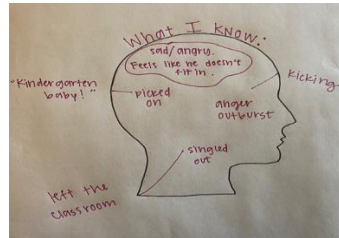 What I Know:
sad/angry.
Feels like he doesn't
fit in.
"Kindergarten
baby!"
picked
on
kicking
anger
outburst
singled
out
left the
classroom